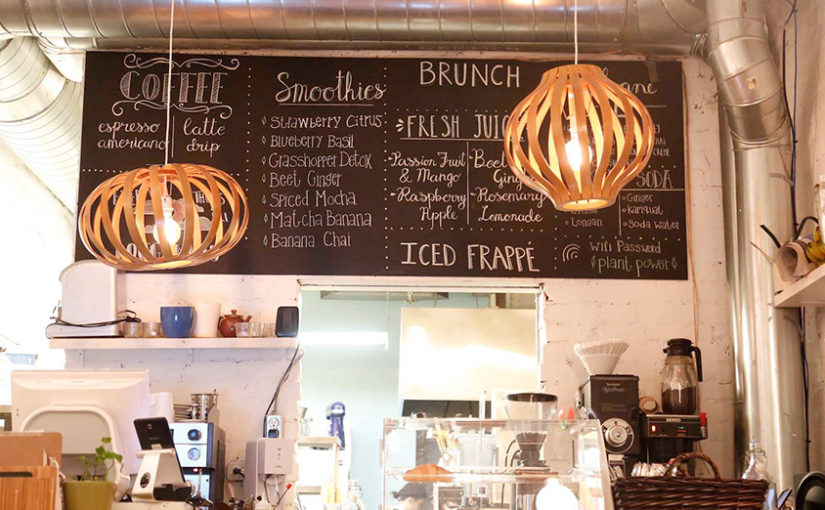 COFFEE
espresso
americano
latte
drip
Smoothies
Strawberry Citrus
Blueberry Basil
Grasshopper Detox
Beet Ginger
Spiced Mocha
Matcha Banana
Banana Chai
BRUNCH
FRESH
Passion Fruit
& Mango
Raspberry
Apple
Rosemary
Lemonade
ICED FRAPPÉ
SODA
Ginger
Soda Water
Wifi Password
plant power